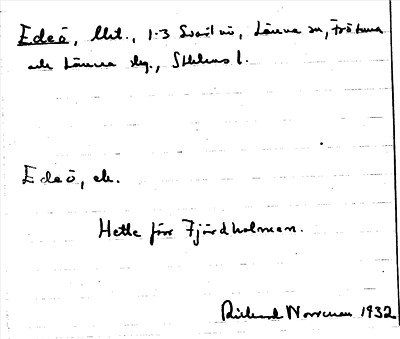 Edeö, lht., 1:3 Svartnö, Länna sn, Frötuna
och Länna skg., Sthlms l.
Edeö, ch.
Hette förr Fjärdholmen.
Rickard Norrman 1932